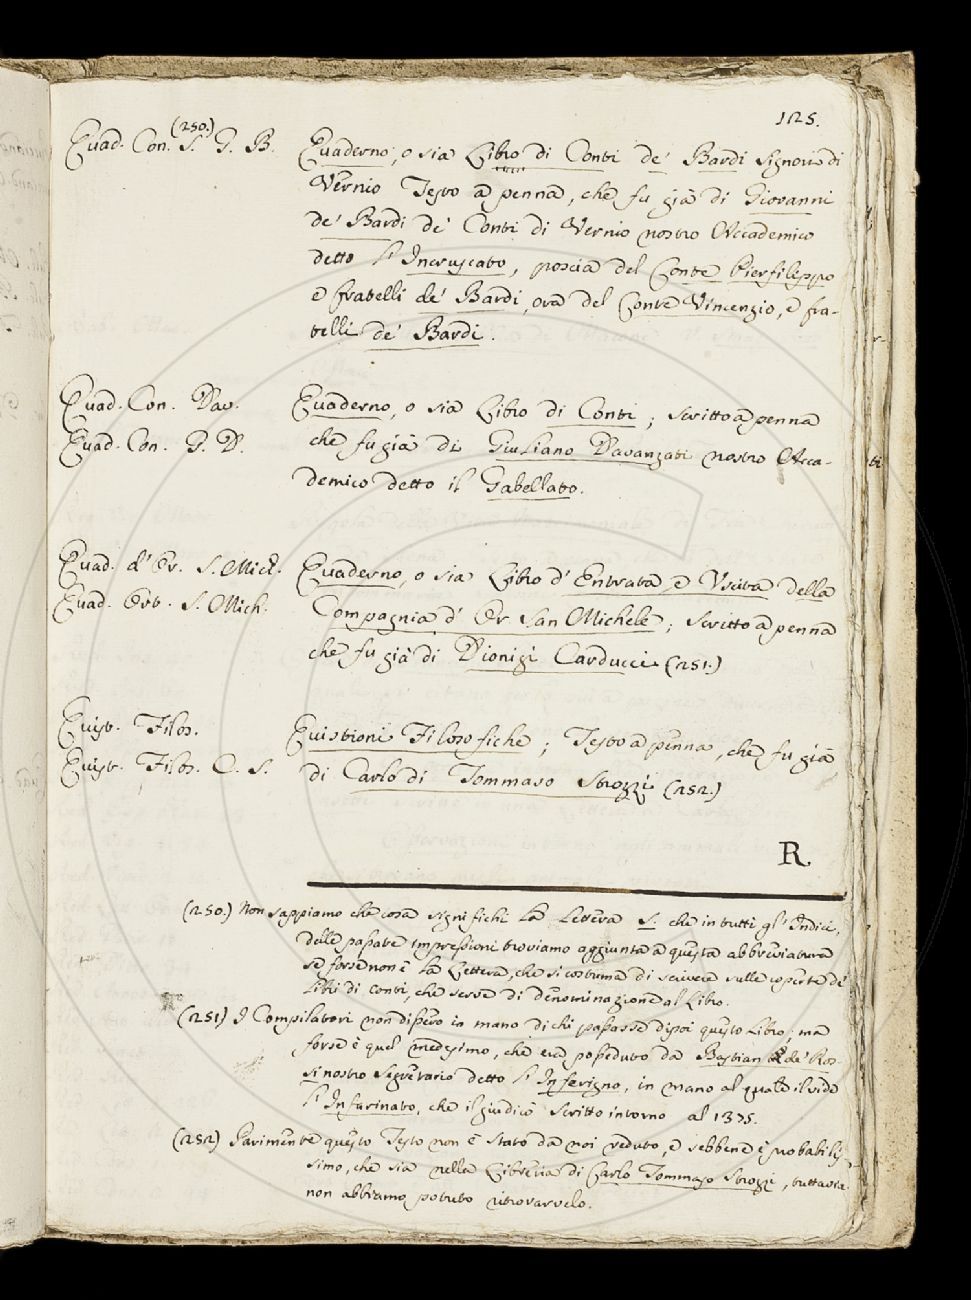 125.
Quad. Con. S. G. B. (250.) Quaderno, o sia Libro di Conti de' Bardi Signori di
Vernio Testo a penna, che fu già di Giovanni
de' Bardi de' Conti di Vernio nostro Accademico
detto l'Incruscato, poscia del Conte Pierfilippo
e fratelli de' Bardi, ora del Conte Vincenzio, e fra-
telli de' Bardi.
Quad. Con. Dav. Quaderno, o sia Libro di Conti; scritto a penna
Quad. Con. G. D. che fu già di Giuliano Davanzati nostro Acca-
demico detto il Gabellato.
Quad. d'Or. S. Mich. Quaderno, o sia Libro d'Entrata, e Uscita della
Quad. Ort. S. Mich. Compagnia d'Or San Michele; scritto a penna
che fu già di Dionigi Carducci (251.)
Quist. Filos. Quistioni Filosofiche; Testo a penna, che fu già
Quist. Filos. C. S. di Carlo di Tommaso Strozzi (252.)
R.
(250.) Non sappiamo che cosa significhi la Lettera S. che in tutti gl'Indici,
delle passate impressioni troviamo aggiunta a questa abbreviatura
se forse non è la Lettera, che si costuma di scrivere sulle coperte de'
Libri di conti, che serve di denominazione al Libro.
(251) I Compilatori non dissero in mano di chi passasse dipoi questo Libro; ma
forse è quel medesimo, che era posseduto da Bastian de' Ros-
si nostro Segretario detto l'Inferigno, in mano al quale il vide
l'Infarinato, che il giudicò scritto intorno al 1375.
(252) Parimente questo Testo non è stato da noi veduto, e sebbene è probabilis-
simo, che sia nella Libreria di Carlo Tommaso Strozzi, tuttavia
non abbiamo potuto ritrovarvelo.